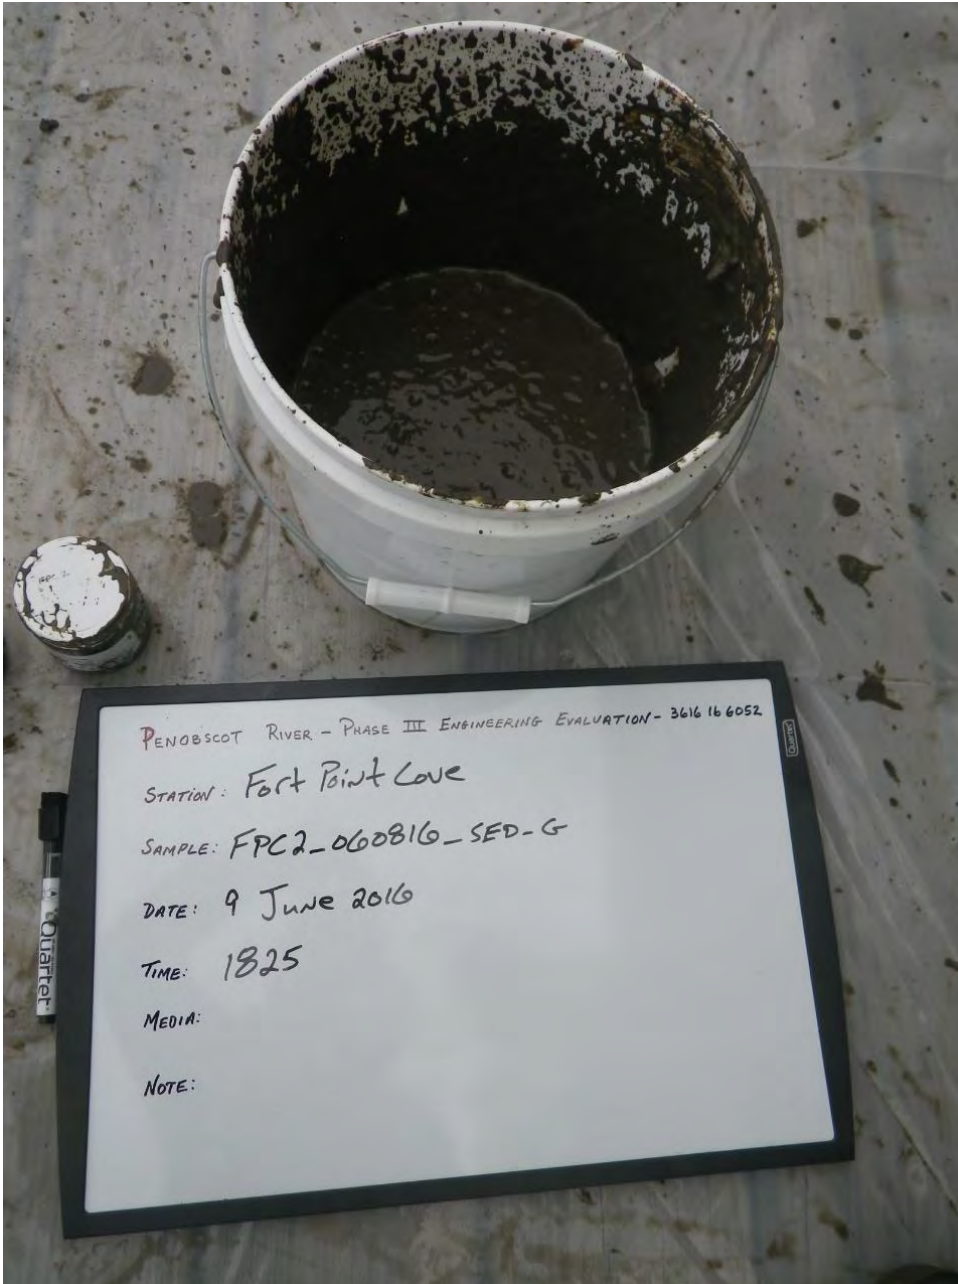 PENOBSCOT RIVER - PHASE III ENGINEERING EVALUATION - 3616 16 6052
STATION: Fort Point Cove
SAMPLE: FPC2_060816_SED-G
DATE: 9 June 2016
TIME: 1825
MEDIA:
NOTE:
Quartet
Quartet